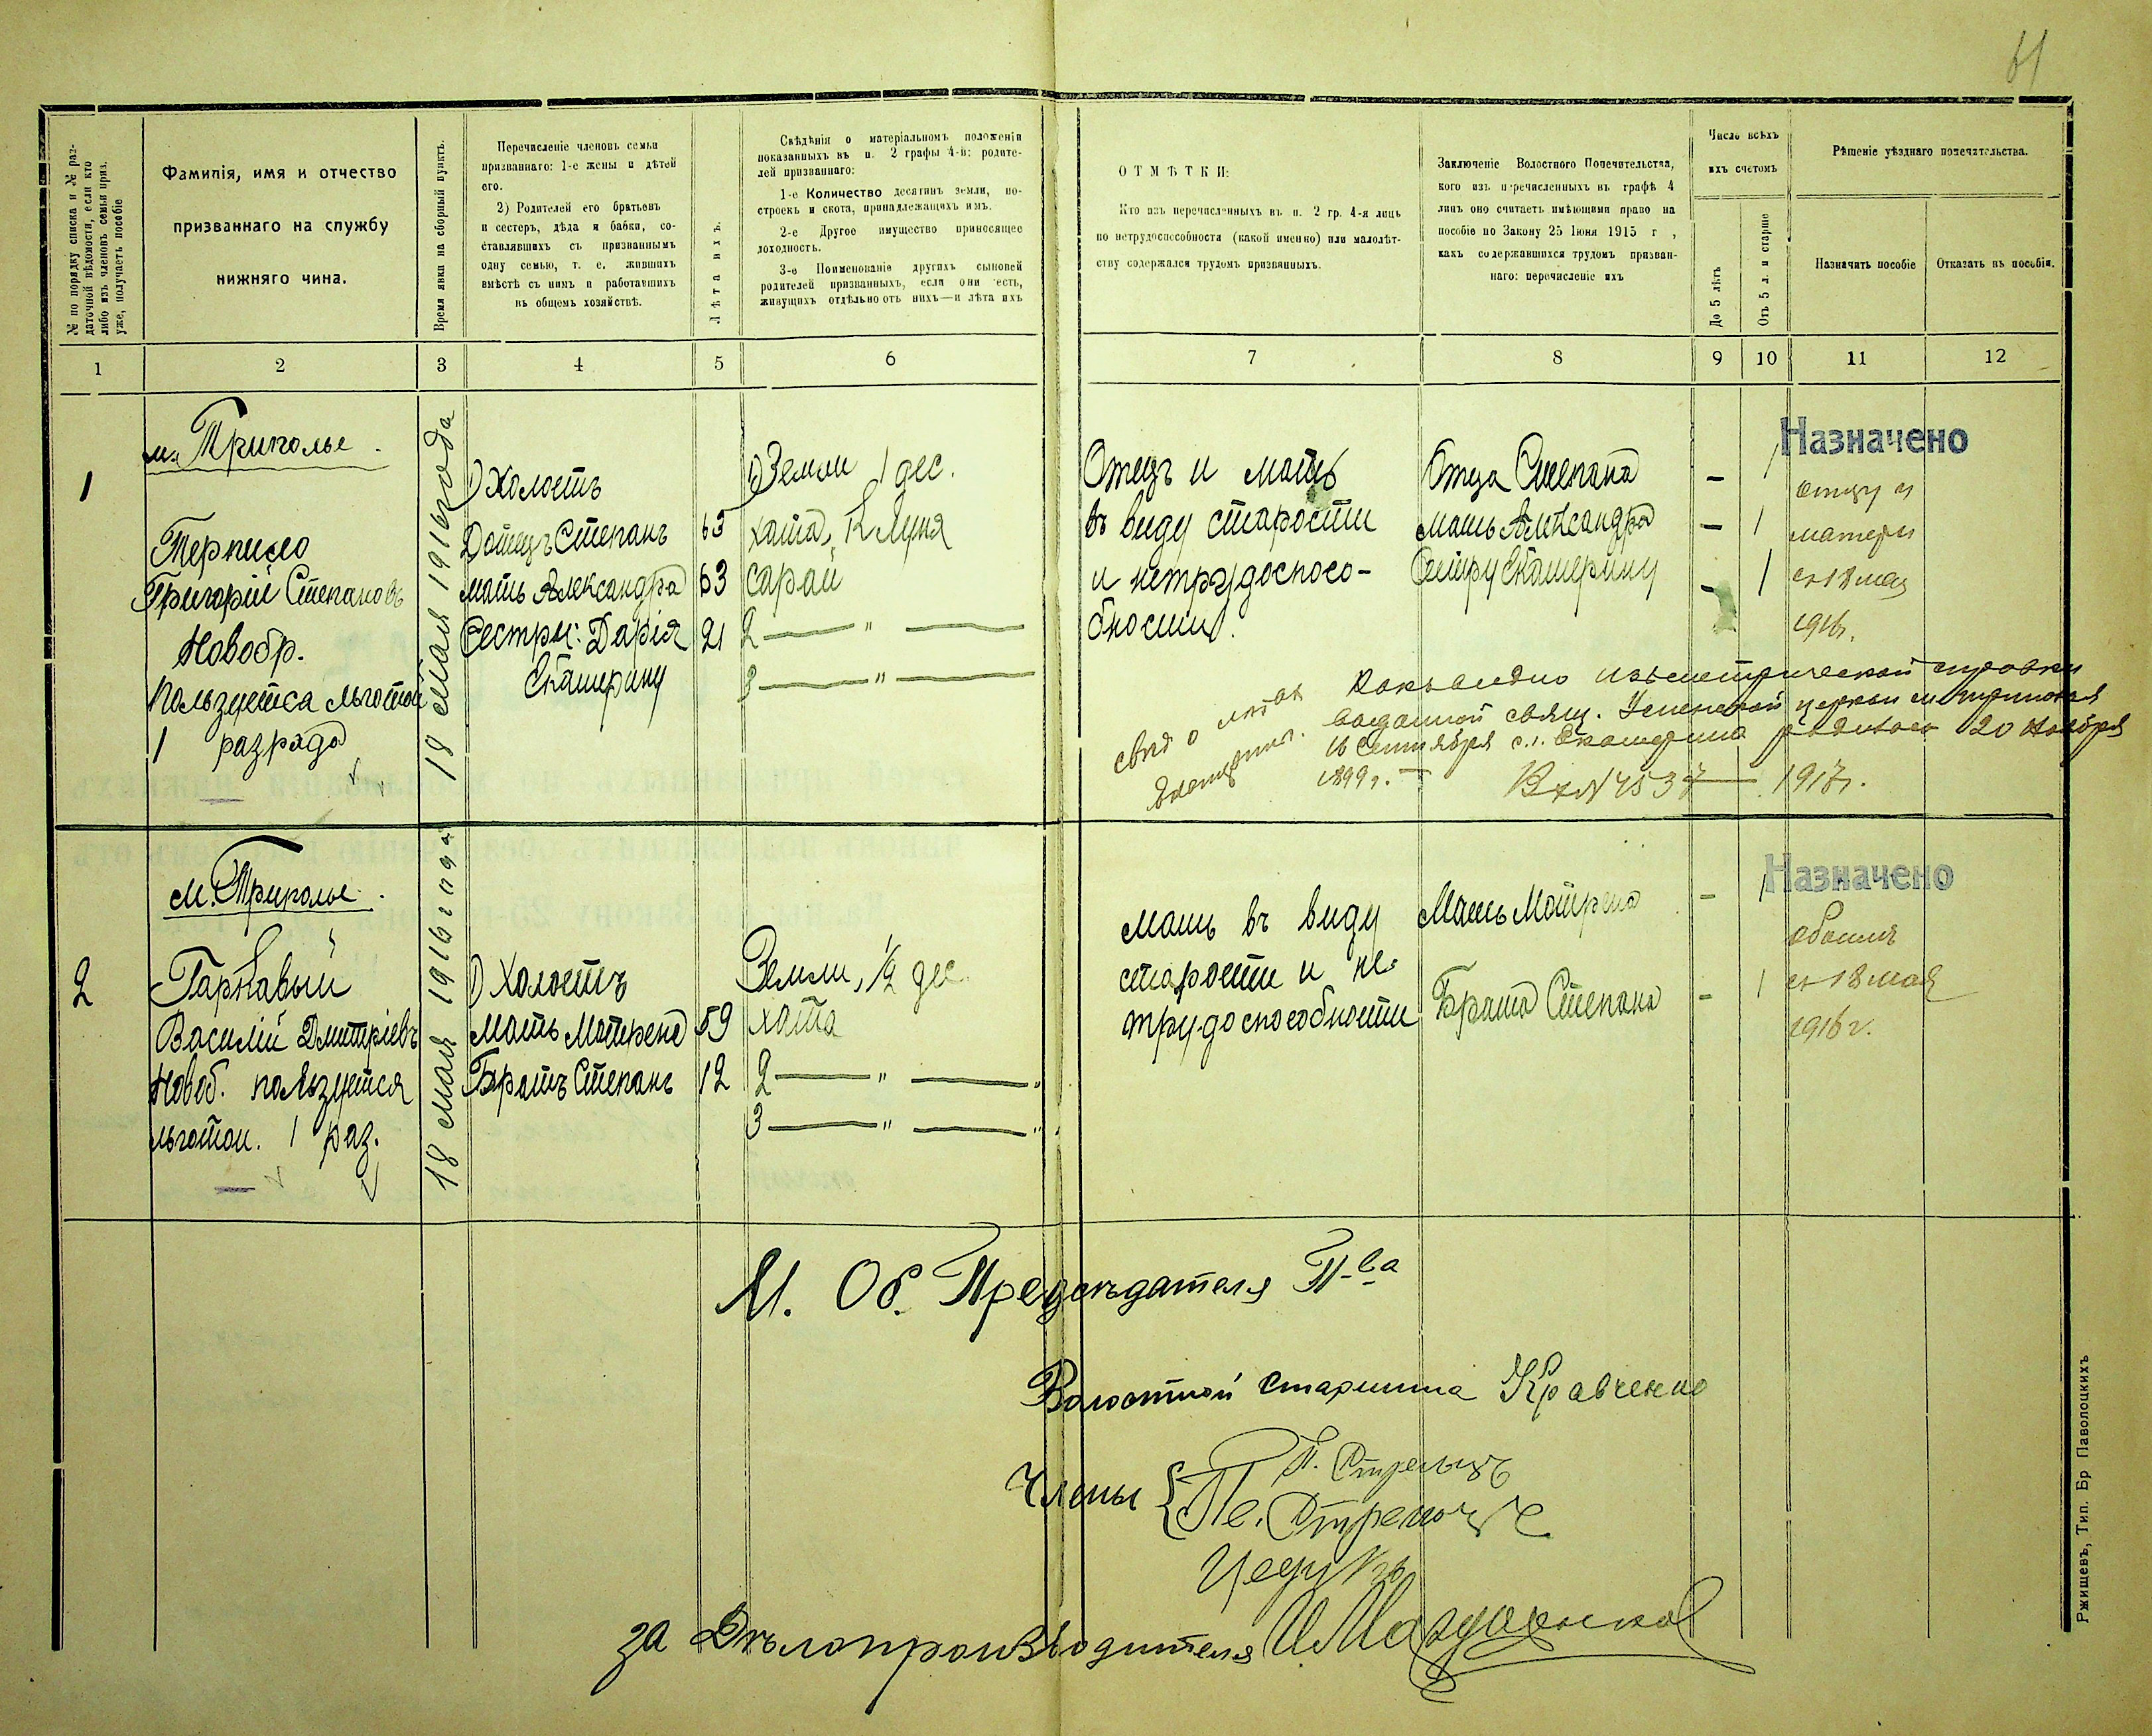 61
№ по порядку списка и № раз-
даточной вѣдомости, если кто
либо изъ членовъ семьи приз.
уже, получаетъ пособіе
Фамилія, имя и отчество
призваннаго на службу
нижняго чина.
Время явки на сборный пунктъ.
Перечисленіе членовъ семьи
призваннаго: 1-е жены и дѣтей
его.
2) Родителей его братьевъ
и сестеръ, дѣда и бабки, со-
ставлявшихъ съ призваннымъ
одну семью, т. е. жившихъ
вмѣстѣ съ нимъ и работавшихъ
въ общемъ хозяйствѣ.
Лѣта ихъ.
Свѣдѣнія о матеріальномъ положеніи
показанныхъ въ п. 2 графы 4-й: родите-
лей призваннаго:
1-е Количество десятинъ земли, по-
строекъ и скота, принадлежащихъ имъ.
2-е Другое имущество приносящее
доходность.
3-е Поименованіе другихъ сыновей
родителей призванныхъ, если они есть,
живущихъ отдѣльно отъ нихъ—и лѣта ихъ
ОТМѢТКИ:
Кто изъ перечисленныхъ въ п. 2 гр. 4-я лицъ
по нетрудоспособности (какой именно) или малолѣт-
ству содержался трудомъ призванныхъ.
Заключеніе Волостного Попечительства,
кого изъ перечисленныхъ въ графѣ 4
лицъ оно считаетъ имѣющими право на
пособіе по Закону 25 Іюня 1915 г ,
какъ содержавшихся трудомъ призван-
наго: перечисленіе ихъ
Число всѣхъ
ихъ счетомъ
До 5 лѣтъ
Отъ 5 л. и старше
Рѣшеніе уѣзднаго попечительства.
Назначить пособіе
Отказать въ пособіи.
1 2 3 4 5 6 7 8 9 10 11 12
1
м. Триполье.
Григорій Степановъ
Новобр.
Пользуется льготой
1 разряда
18 Мая 1916 года
1) Холостъ
2) отецъ Степанъ 63
мать Александра 63
Сестры: Дарія 21
Екатерину
1) Земли 1 дес.
хата,
сарай
2 — " —
3 — " —
Отецъ и мать
въ виду старости
и нетрудоспосо-
бности.
Отца Степана – 1
мать Александра – 1
Сестру Екатерину – 1
Назначено
отцу и
матери
съ 18 мая
1916г.
Какъ видно изъ метрической справки
выданной свящ. Успенской церкви м. Триполья
16 Сентября с.г. Екатерина родилась 20 Ноября
1899 г. — Вх № 4537 — 1917г.
м. Триполье.
2
Гаркавый
Василій Дмитріевъ
Новоб. пользуется
льготой. 1 раз.
18 мая 1916 года
1) Холостъ
Мать Матрена 59
Братъ Степанъ 12
Земли, ½ дес
хата
2 — " — "
3 — " — "
Мать въ виду
старости и не-
трудоспособности
Мать Матрена – 1
Брата Степана – 1
Назначено
обоимъ
съ 18 мая
1916 г.
И. Об. Предсѣдателя П-ва
Волостной Старшина Кравченко
Члены
за Дѣлопроизводителя
Ржищевъ, Тип. Бр Паволоцкихъ